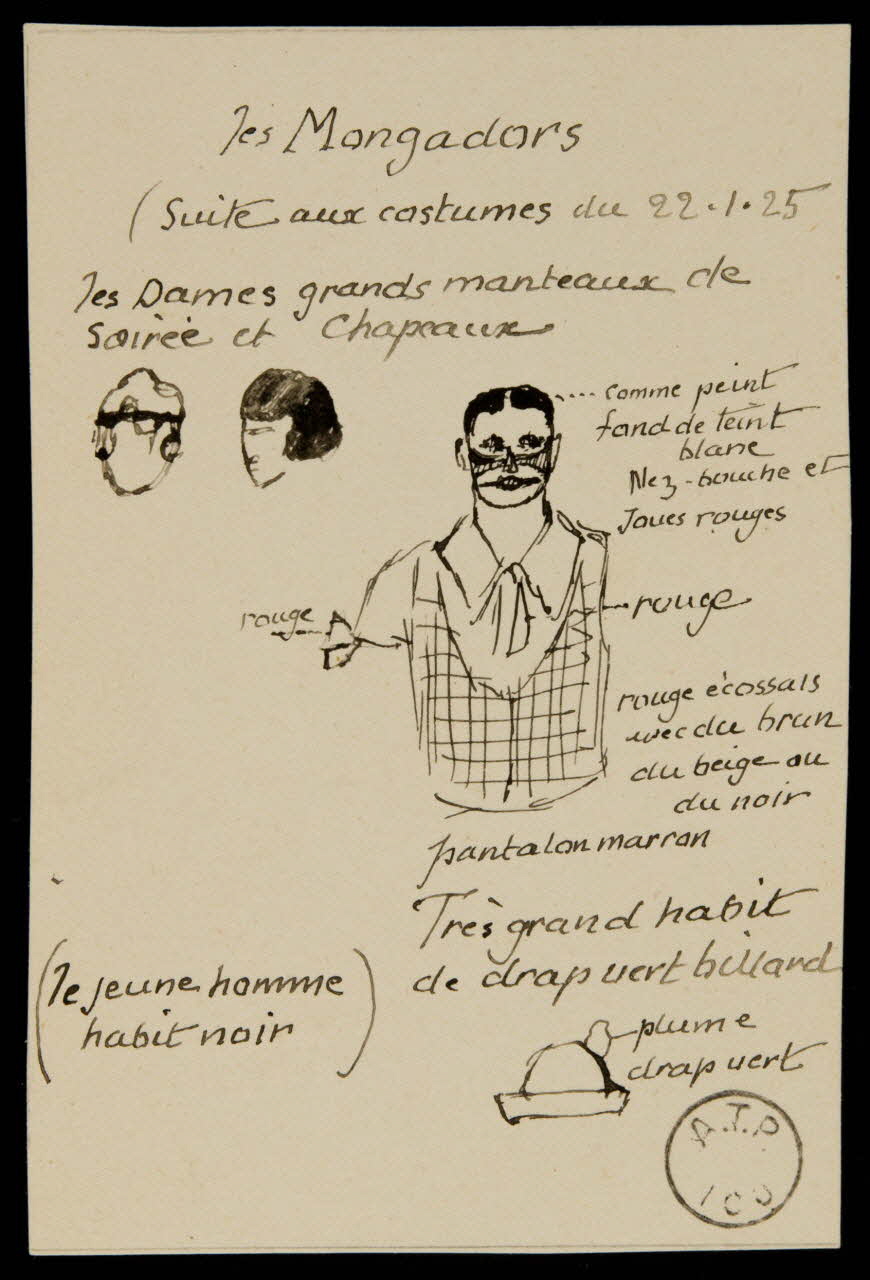 les Mongadors
(Suite aux costumes du 22.1.25
les Dames grands manteaux de
Soirée et Chapeaux
comme peint
fond de teint
blanc
Nez-bouche et
Joues rouges
rouge
rouge
rouge écossais
avec du brun
du beige ou
du noir
pantalon marron
Très grand habit
de drap vert billard
(le jeune homme
habit noir)
plume
drap vert
A.T.P